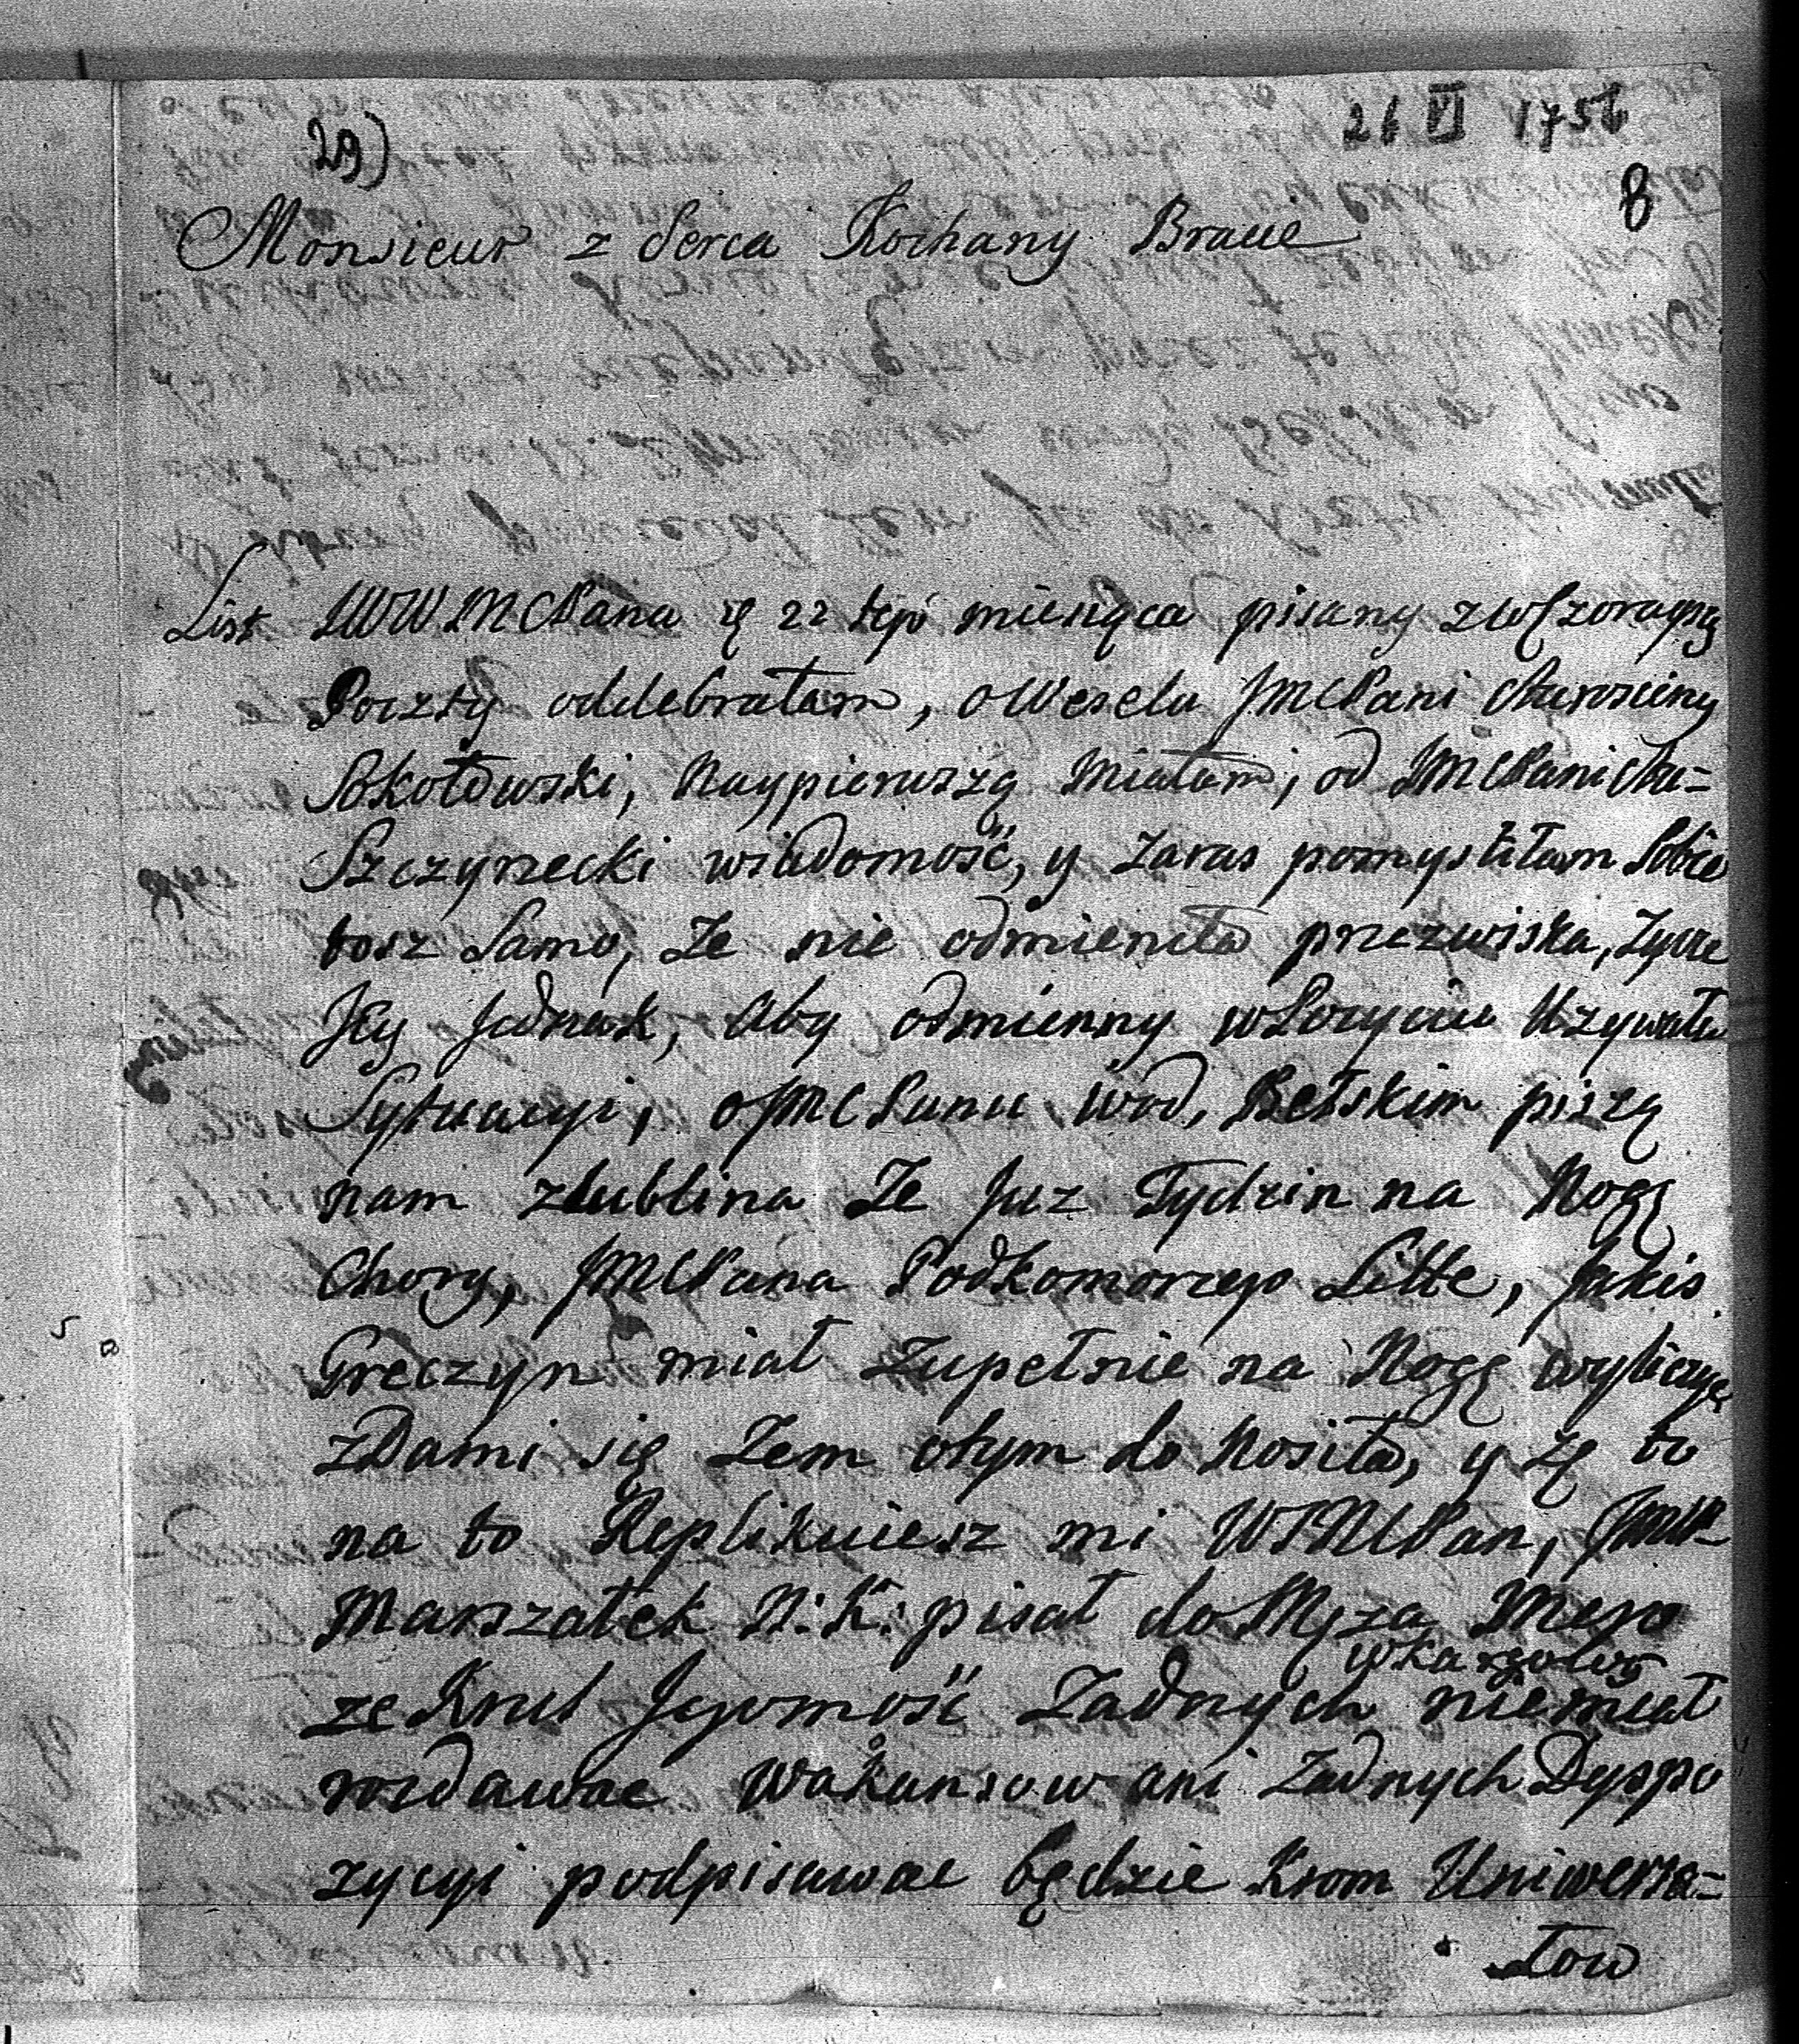 29)
26 VI 1756
8
Monsieur z Serca Kochany Bracie
List WWMCPana 22 tego miesiąca pisany zwczorayszą
Pocztą oddebrałam, o Weselu JMCPani Starosciny
Sokołowski, Naypierwszą Miałam, od JMCPani Stu=
Szczynecki wiadomość, y Zaras pomysliłam Sobie
tosz Samo, Ze nie odmieniła przezwiska, Zycze
Jey Jednak, Aby odmienny wPozyciu Uzywała
Sytuacyi, o JMCPanu Wod, Bełskim piszą
nam zLublina Ze Juz Tydzin na Nogę
Chory, JMCPana Podkomorzego Litte, Jakis
Greczyn miał Zupełnie na Nogę wyliczyć
zDami się Zem otym do Nosiła, y zę to
na to Replikuiesz mi WMCPan, JMCP
Marszałek N: K: pisał do Męza Mego
ze Krul Jegomość Zadnych wkargolwy niemiał
rozdawac Wakansow ani Zadnych Dyspo
zycyi podpisawac będzie Krom Uniwersa=
łow